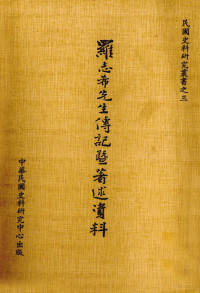 民國史料研究叢書之三
羅志希先生傳記暨著述資料
中華民國史料研究中心出版